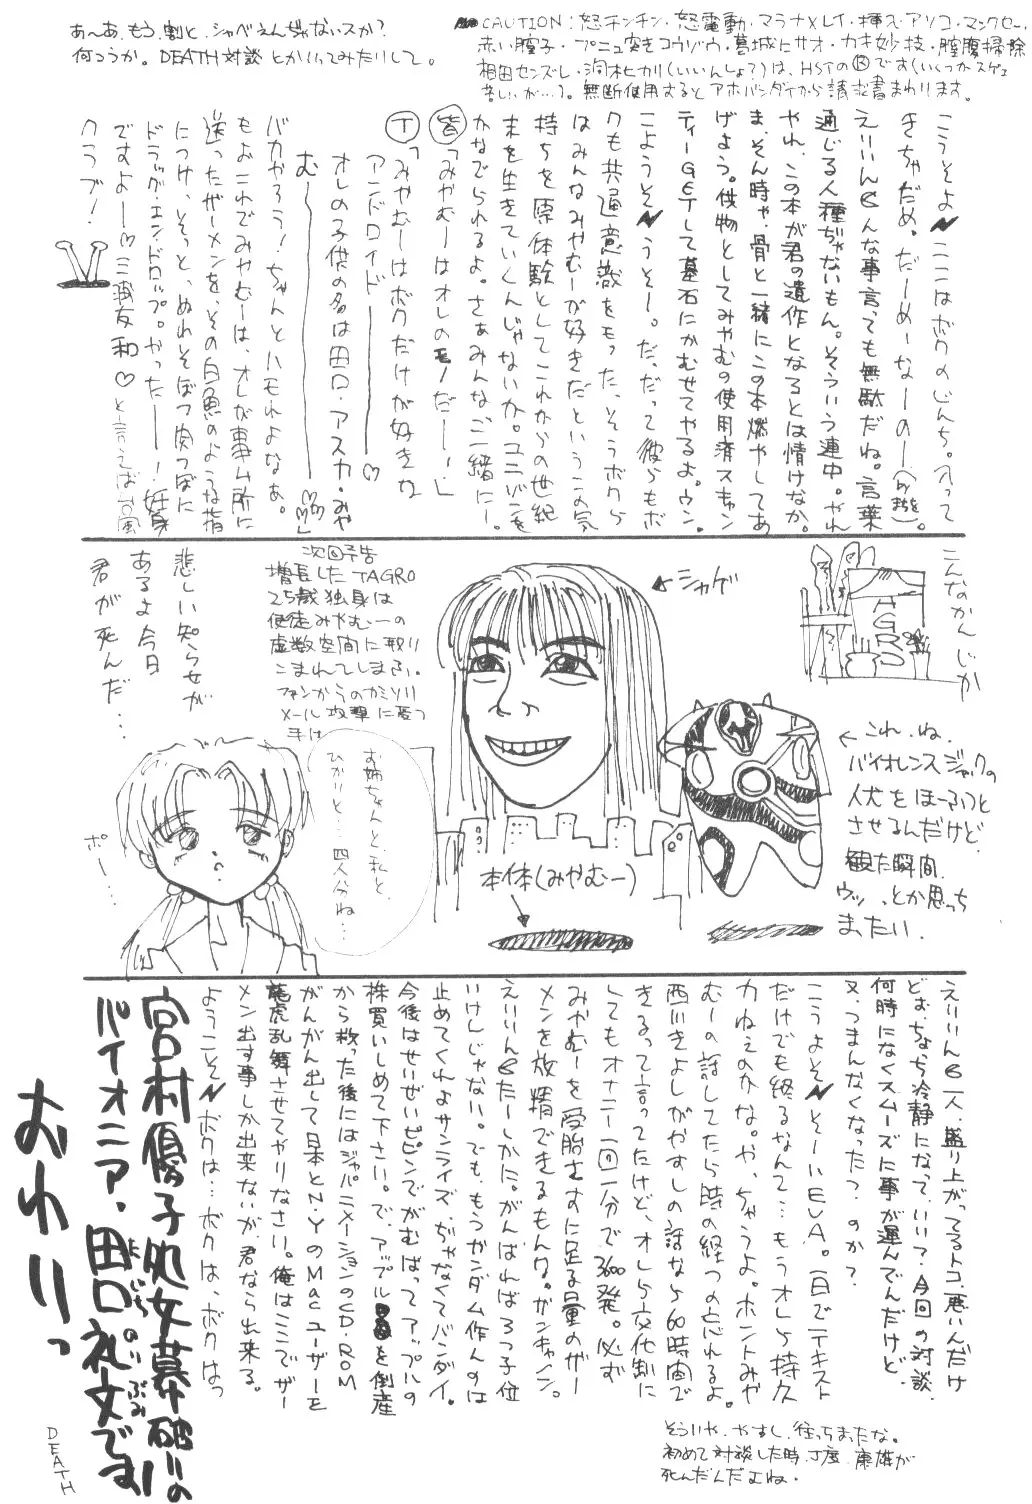 あ〜あ、もう、割と、シャベえんぢゃないスか?
何つうか。DEATH対談とかいってみたりして。
CAUTION:怒チンチン・怒電動・マラナメレイ・挿入・アソコ・マンクセー・
赤い膣子・プニュ突きコウゾウ・葛城ヒサオ・カキ妙技・膣腹掃除
相田センズレ・洞木ヒカリ(いいんしょ?)は、HSTのⓇです(いくつかスゲェ
苦しいが…)。無断使用するとアホバンダイから請求書まわります。
こうそよ ここはボクのじんち。入って
きちゃだめ。だーめーなーのー
えりいんらんな事言っても無駄だね。言葉
通じる人種ぢゃないもん。そういう連中。やれ
やれ、この本が君の遺作となるとは情けなか。
ま、そん時ゃ骨と一緒にこの本燃やしてあ
げよう。供物としてみやむの使用済スキャン
ティーGETして墓石にかむせてやるよ。ウン。
こようそ うそー。だ、だって彼らもボ
クも共通意識をもった、そうボクら
はみんなみやむーが好きだというこの気
持ちを原体験としてこれからの世紀
末を生きていくんじゃないか。ユニゾンを
かなでられるよ。さぁみんなご一緒にー。
皆「みやむーはオレのモノだーー!」
T「みやむーはボクだけが好きな
アンドロイドーーー♡
オレの子供の名は田口・アスカ・みや
むーーーー♡♡♡」
バカやろう!ちゃんとハモれよなぁ。
もぉこれでみやむーは、オレが事ム所に
送ったザーメンを、その白魚のような指
につけ、そっと、ぬれそぼつ肉つぼに
ドラッグ・エンドロップ。やったーー!妊娠
ですよーー♡三波友和♡と言えば台風
クラブ!
こんなかんじか
AGRS
←シャゲ
←これ、ね、
バイオレンスジャックの
人犬をほーふつと
させるんだけど、
観た瞬間、
ウッ…とか思っち
まったい。
本体(みやむー)
次回予告
増長したTAGRO
25歳独身は
使徒みやむーの
虚数空間に取り
こまれてしまう。
ファンからのカミソリ
メール攻撃に憂つ
手は
悲しい知らせが
あるよ 今日
君が死んだ…
お姉ちゃんと、私と、
ひかりと…四人分ね…
ポー…
えりいんら一人、盛り上がってるトコ、悪いんだけ
ど、もちっち冷静になって、いい?今回の対談、
何時になくスムーズに事が運んでんだけど、
又、つまんなくなったっ?のか?
こうよそ そーいEVA。一日でテキスト
だけでも終るなんて…もうオレら持久
力ねぇのかな。や、ちゃうよ。ホントみや
むーの話してたら時の経つの忘れるよ。
西川きよしがやすしの話なら60時間で
きるって言ってたけど、オレら交代制に
してもオナニー一回一分で3600発。必ず
みやむーを受胎さすに足る量のザー
メンを放精できるもんな。ガンキャノン。
えりいんらたーしかに。がんばれば3つ子位
いけんじゃない。でも、もうガンダム作んのは
止めてくれよサンライズ、ぢゃなくてバンダイ。
今後はせいぜいピピンでがむばってアップルの
株買いしめて下さい。で、アップルを倒産
から救った後にはジャパニメーションのCD-ROM
がんがん出して日本とN.YのMacユーザーを
龍虎乱舞させてやりなさい。俺はここでザー
メン出す事しか出来ないが、君なら出来る。
ようこそ ボクは…ボクは、ボクはっ
宮村優子処女幕破りの
パイオニア、田口礼文です
おわりっ
DEATH
そういや、やすし、往っちまったな。
初めて対談した時、丁度、康雄が
死んだんだよね。